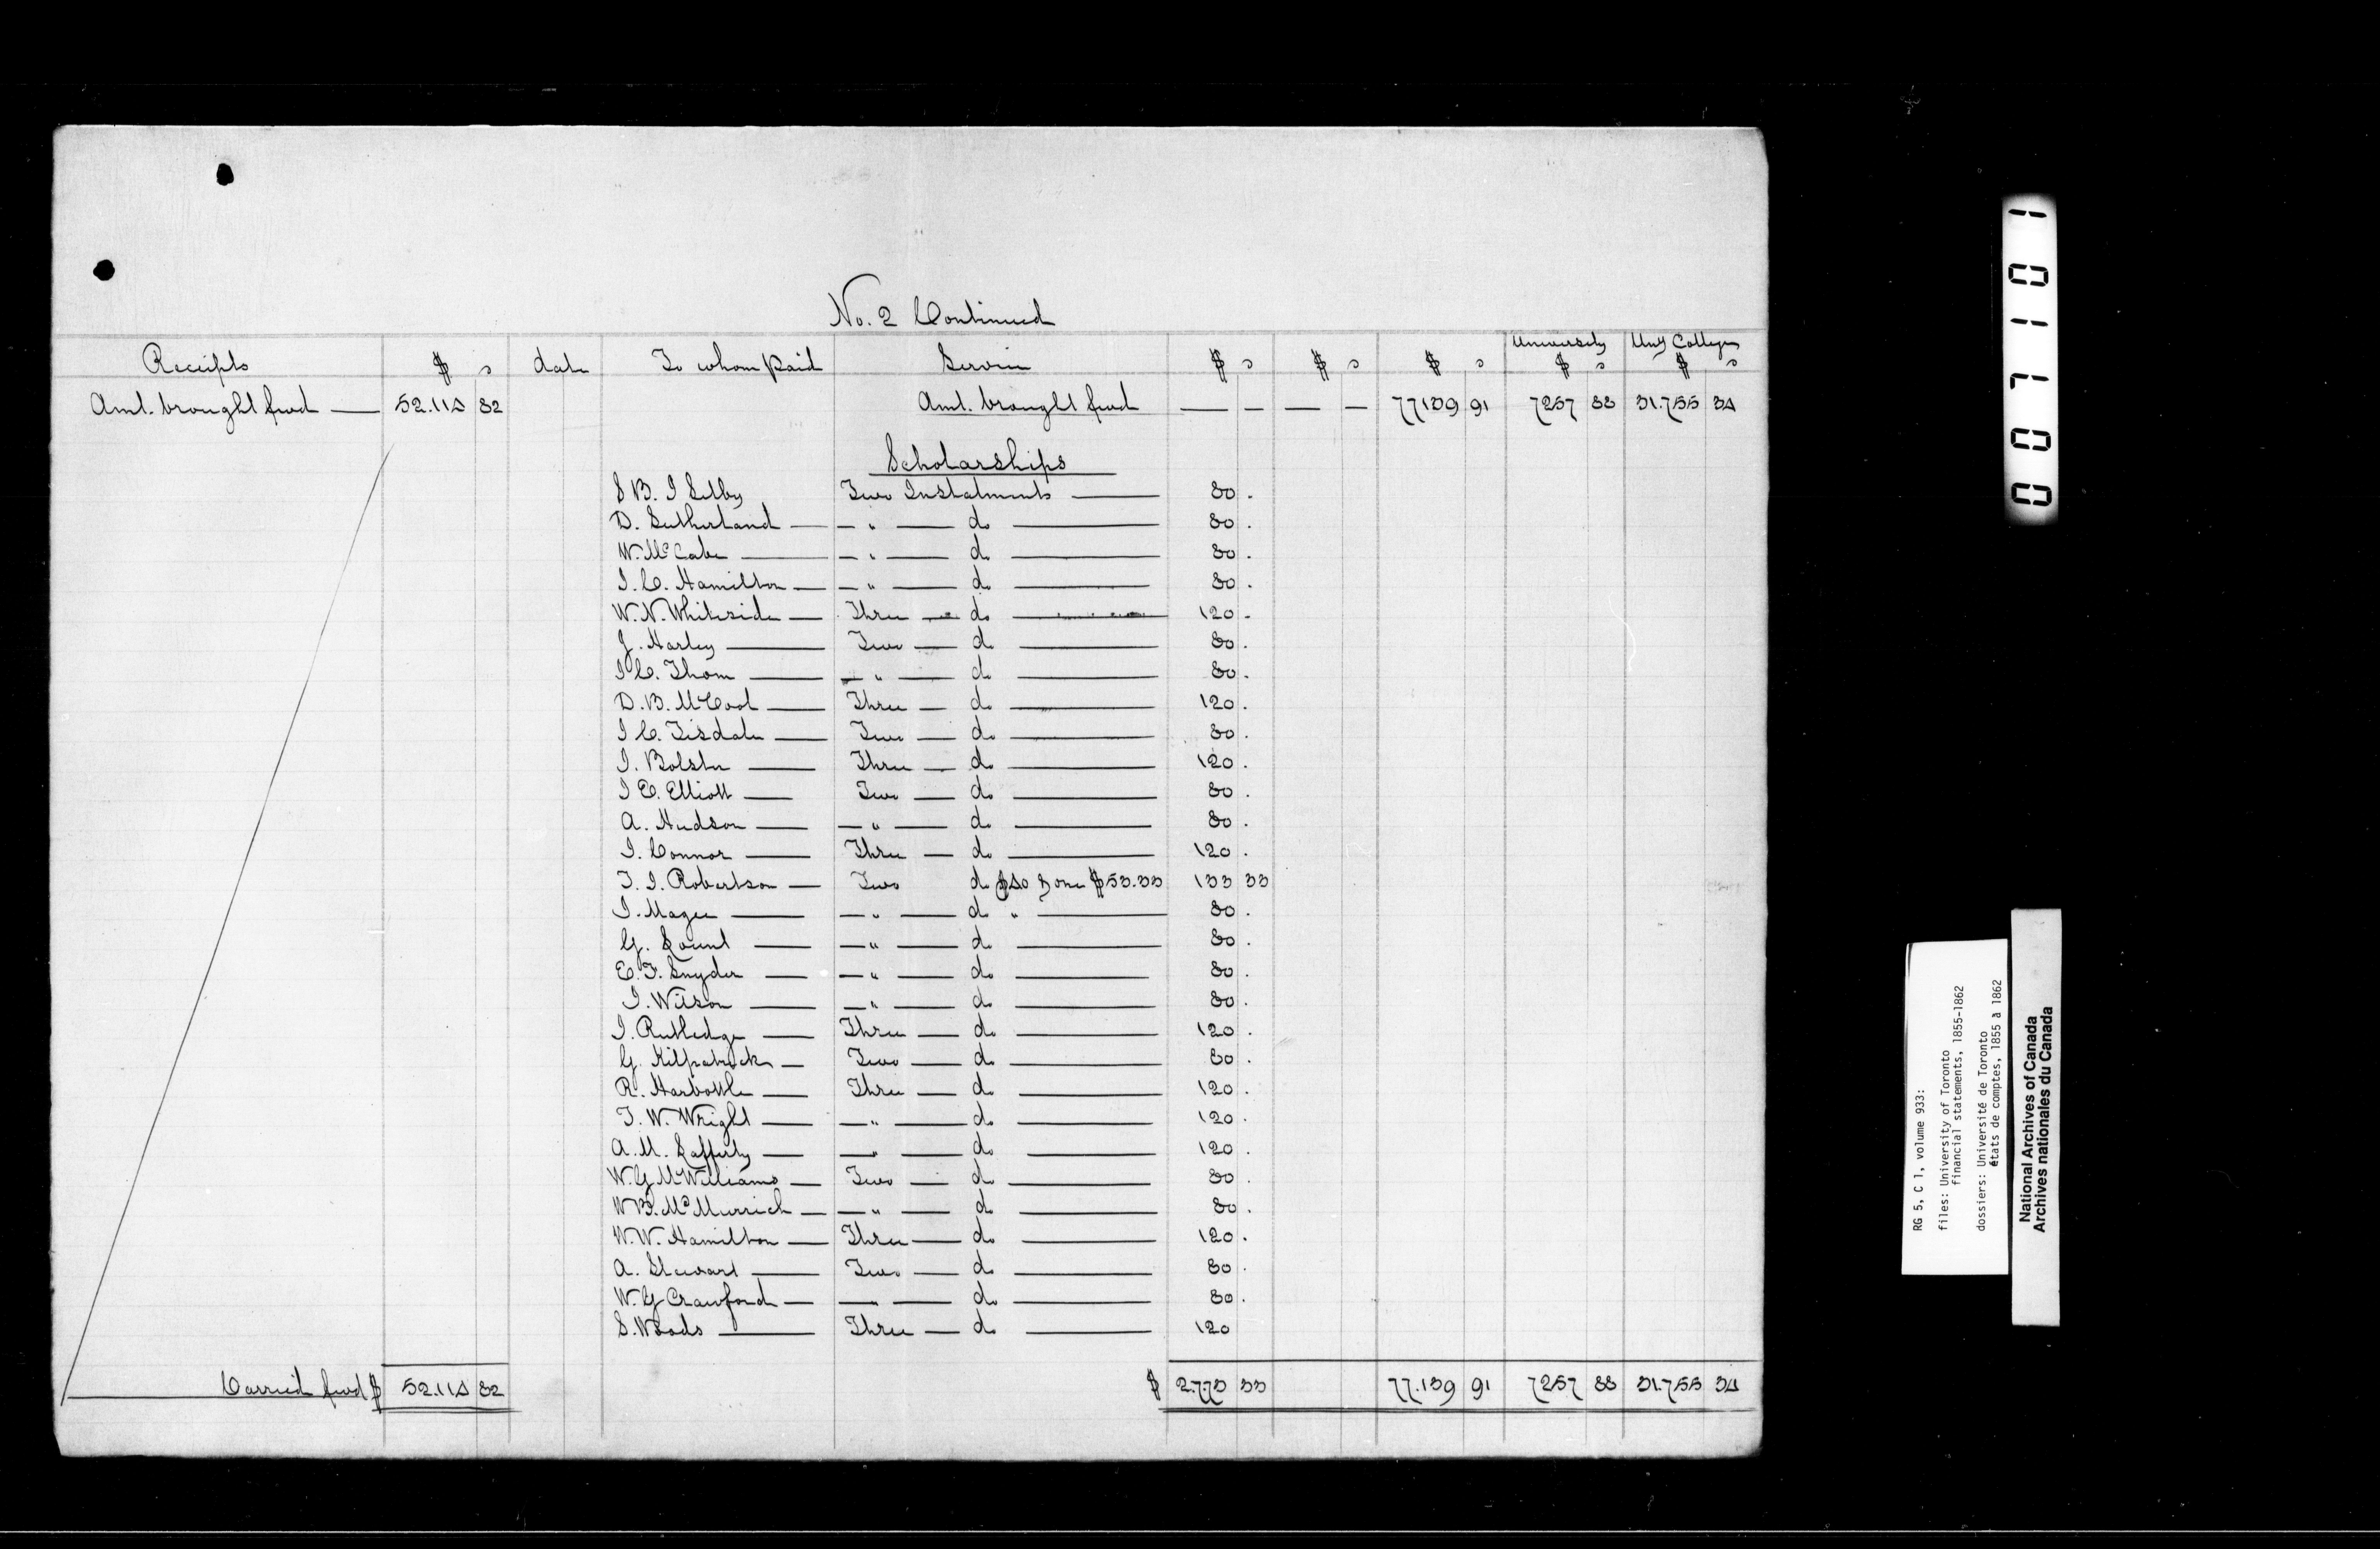 No. 2 Continued
Receipts $ c date To whom paid Service $ c $ c $ c University $ c Uny College $ c
Amt. brought fwd — 52.114 82 Amt. brought fwd — — — — 77139 91 7257 88 31.755 34
Scholarships
S B. J Selby Two Instalments — 80 .
D. Sutherland — — " — do — 80 .
W. McCabe — — " — do — 80 .
J. C. Hamilton — — " — do — 80 .
W. N. Whiteside — Three — do — 120 .
J. Harley — Two — do — 80 .
J C. Thom — — " — do — 80 .
D. B. McCool — Three — do — 120 .
J C. Tisdale — Two — do — 80 .
J. Bolster — Three — do — 120 .
J E. Elliott — Two — do — 80 .
A. Hudson — — " — do — 80 .
J. Connor — Three — do — 120 .
T. J. Robertson — Two do $40 & one $53.33 133 33
J. Magee — — " — do " — 80 .
G. Lount — — " — do — 80 .
E. F. Snyder — — " — do — 80 .
J. Wilson — — " — do — 80 .
J. Rutledge — Three — do — 120 .
G. Kilpatrick — Two — do — 80 .
R. Harbottle — Three — do — 120 .
T. W. Wright — — " — do — 120 .
A. M. Lafferty — — " — do — 120 .
W. G McWilliams — Two — do — 80 .
W B. McMurrich — — " — do — 80 .
W. W. Hamilton — Three — do — 120 .
A. Stewart — Two — do — 80 .
W. G Crawford — — " — do — 80 .
S. Woods — Three — do — 120
Carried fwd $ 52.114 82 $ 2.773 33 77.139 91 7257 88 31.755 34
007101
RG 5, C 1, volume 933:
files: University of Toronto
financial statements, 1855-1862
dossiers: Université de Toronto
états de comptes, 1855 à 1862
National Archives of Canada
Archives nationales du Canada